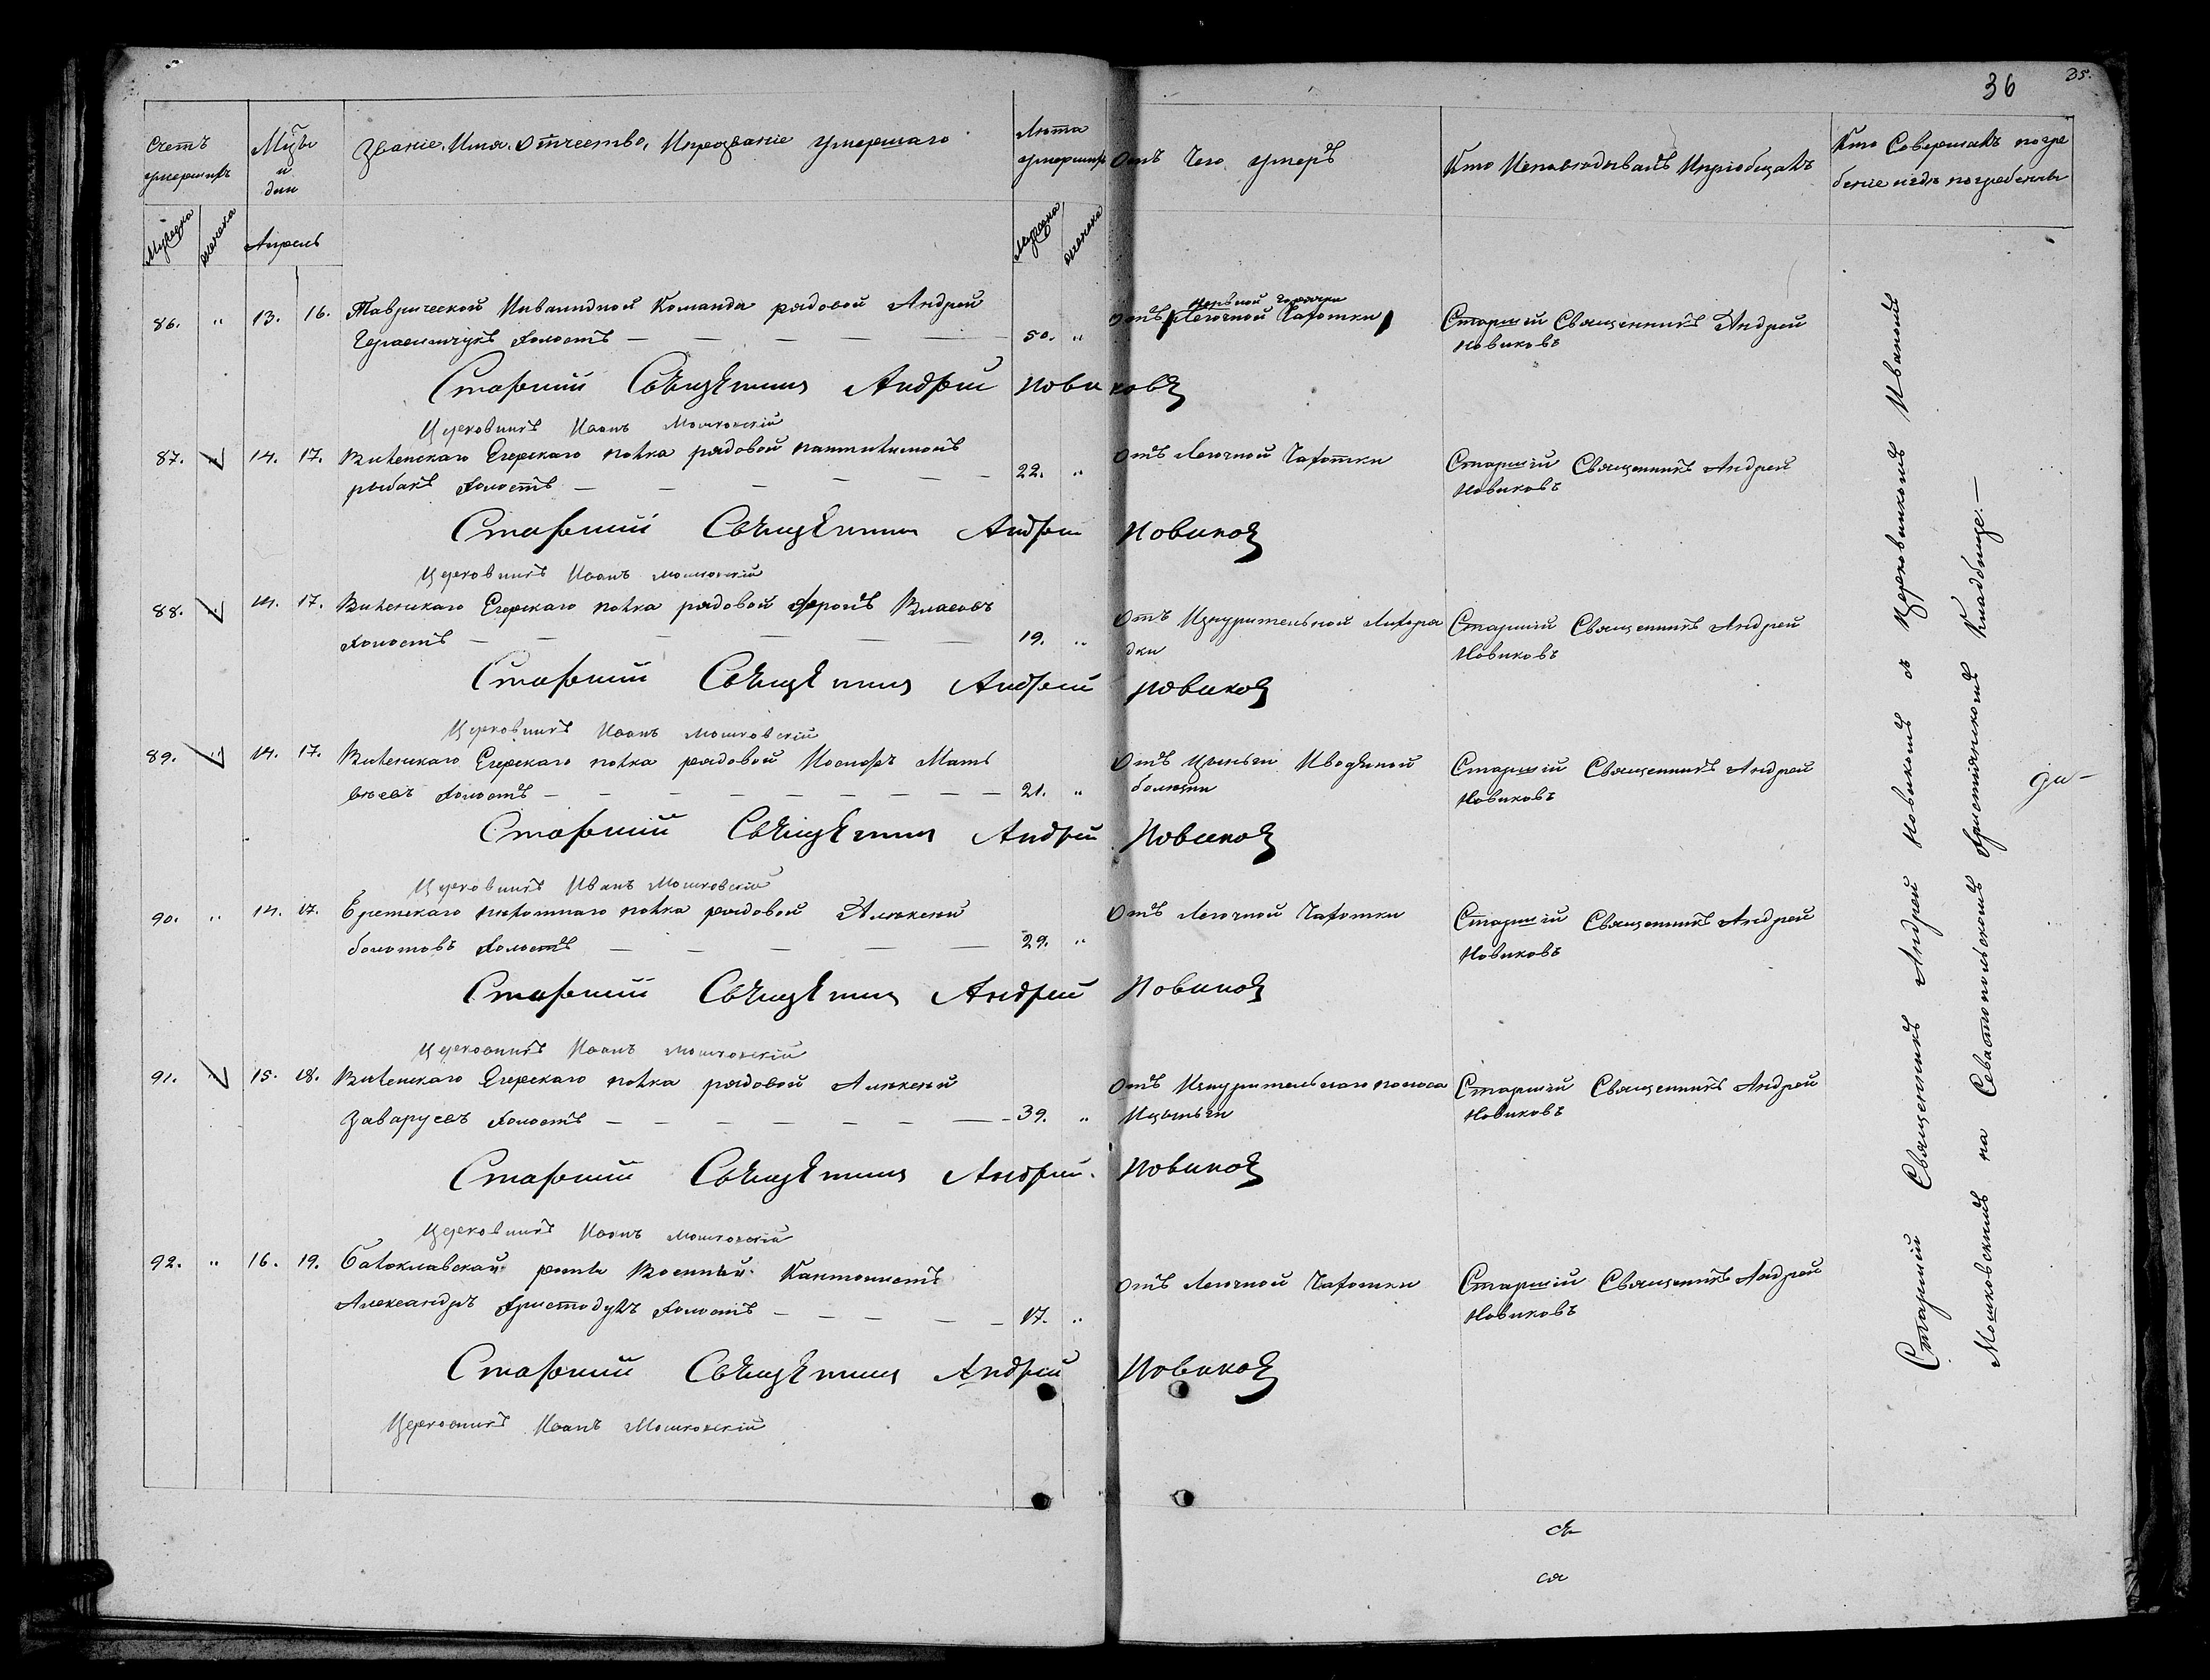 36
35.
Счетъ умершихъ
Мцы и дни
Званіе, Имя, Отчество, Ипрозваніе умершаго
Лѣта умершихъ
Отъ Чего умеръ
Кто Исповѣдывалъ Ипріобщалъ
Кто Совершалъ погре
беніе игдѣ погребены
Мужеска
женска
Апрель
Мужеска
женска
86. " 13. 16. Таврической Инвалидной Команды рядовой Андрей
Герасимчукъ холостъ 50. "
нервной горячки
Отъ Легочной Чахотки
Старшій Священникъ Андрей
Новиковъ
Старшій Священникъ Андрей Новиковъ
Церковникъ Иванъ Мошковскій
87. 14. 17. Виленскаго Егерскаго полка рядовой
рыбакъ холостъ 22. "
Отъ Легочной Чахотки
Старшій Священникъ Андрей
Новиковъ
Старшій Священникъ Андрей Новиковъ
Церковникъ Иванъ Мошковскій
88. 14. 17. Виленскаго Егерскаго полка рядовой Власовъ
холостъ 19. "
Отъ Изнурительной Лихора
дки
Старшій Священникъ Андрей
Новиковъ
Старшій Священникъ Андрей Новиковъ
Церковникъ Иванъ Мошковскій
89. 14. 17. Виленскаго Егерскаго полка рядовой Иосифъ Мать
вѣевъ холостъ 21. "
Отъ Цынъги Иводяной
болѣзни
Старшій Священникъ Андрей
Новиковъ
Старшій Священникъ Андрей Новиковъ
Церковникъ Иванъ Мошковскій
90. " 14. 17. Брестскаго пѣхотнаго полка рядовой Алексей
болотовъ холостъ 29. "
Отъ Легочной Чахотки
Старшій Священникъ Андрей
Новиковъ
Старшій Священникъ Андрей Новиковъ
Церковникъ Иванъ Мошковскій
91. 15. 18. Виленскаго Егерскаго полка рядовой Алексей
Заваруевъ холостъ 39. "
Отъ Изнурительнаго поноса
Ицынъги
Старшій Священникъ Андрей
Новиковъ
Старшій Священникъ Андрей Новиковъ
Церковникъ Иванъ Мошковскій
92. " 16. 19. Балоклавской роты Военный Кантонистъ
Александръ Христодулъ холостъ 17. "
Отъ Легочной Чахотки
Старшій Священникъ Андрей
Новиковъ
Старшій Священникъ Андрей Новиковъ
Церковникъ Иванъ Мошковскій
Старшій Священникъ Андрей Новиковъ съ Церковникомъ Иваномъ
Мошковскимъ на Севастопольскомъ Христіянскомъ Кладбище.